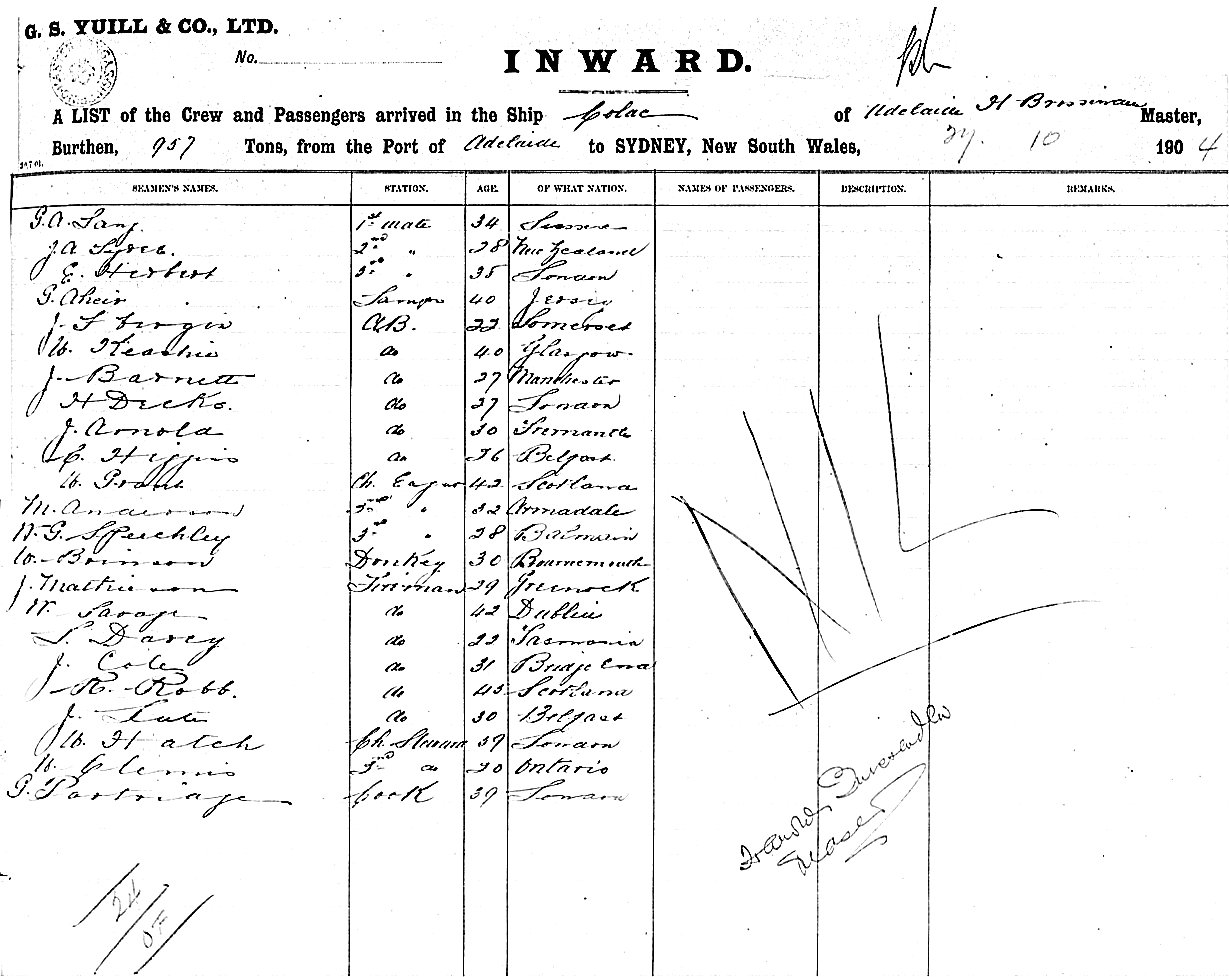 G. S. YUILL & CO., LTD.
No.
INWARD.
A LIST of the Crew and Passengers arrived in the Ship Colac of Adelaide H Master,
Burthen, 957 Tons, from the Port of Adelaide to SYDNEY, New South Wales, 27. 10 1904
SEAMEN'S NAMES. STATION. AGE. OF WHAT NATION. NAMES OF PASSENGERS. DESCRIPTION. REMARKS.
G. A. 1st mate 34
J. A 2nd " 28 New Zealand
E. Herbert 3rd " 35 London
G. Lamps 40
J. 22 Somerset
A.B.
W. do 40 Glasgow
J. Barnett do 27 Manchester
H Dicks. do 27 London
J. Arnold do 30 Fremantle
C. Higgins do 26 Belfast
W. Grant Ch. 42 Scotland
M. Anderson 2nd " 32 Armadale
W. G. Speechley 3rd " 28 Balmain
W. Brinson Donkey 30 Bournemouth
J. Mathieson Fireman 29 Greenock
W. Savage do 42 Dublin
S. Darcy do 22 Tasmania
J. Cole do 31 Bridge End
R. Robb. do 45 Scotland
J. do 30 Belfast
W. Hatch Ch. Steward 39 London
W. Clennis 2nd do 20 Ontario
G. Partridge Cook 39 London
NIL
Master
24